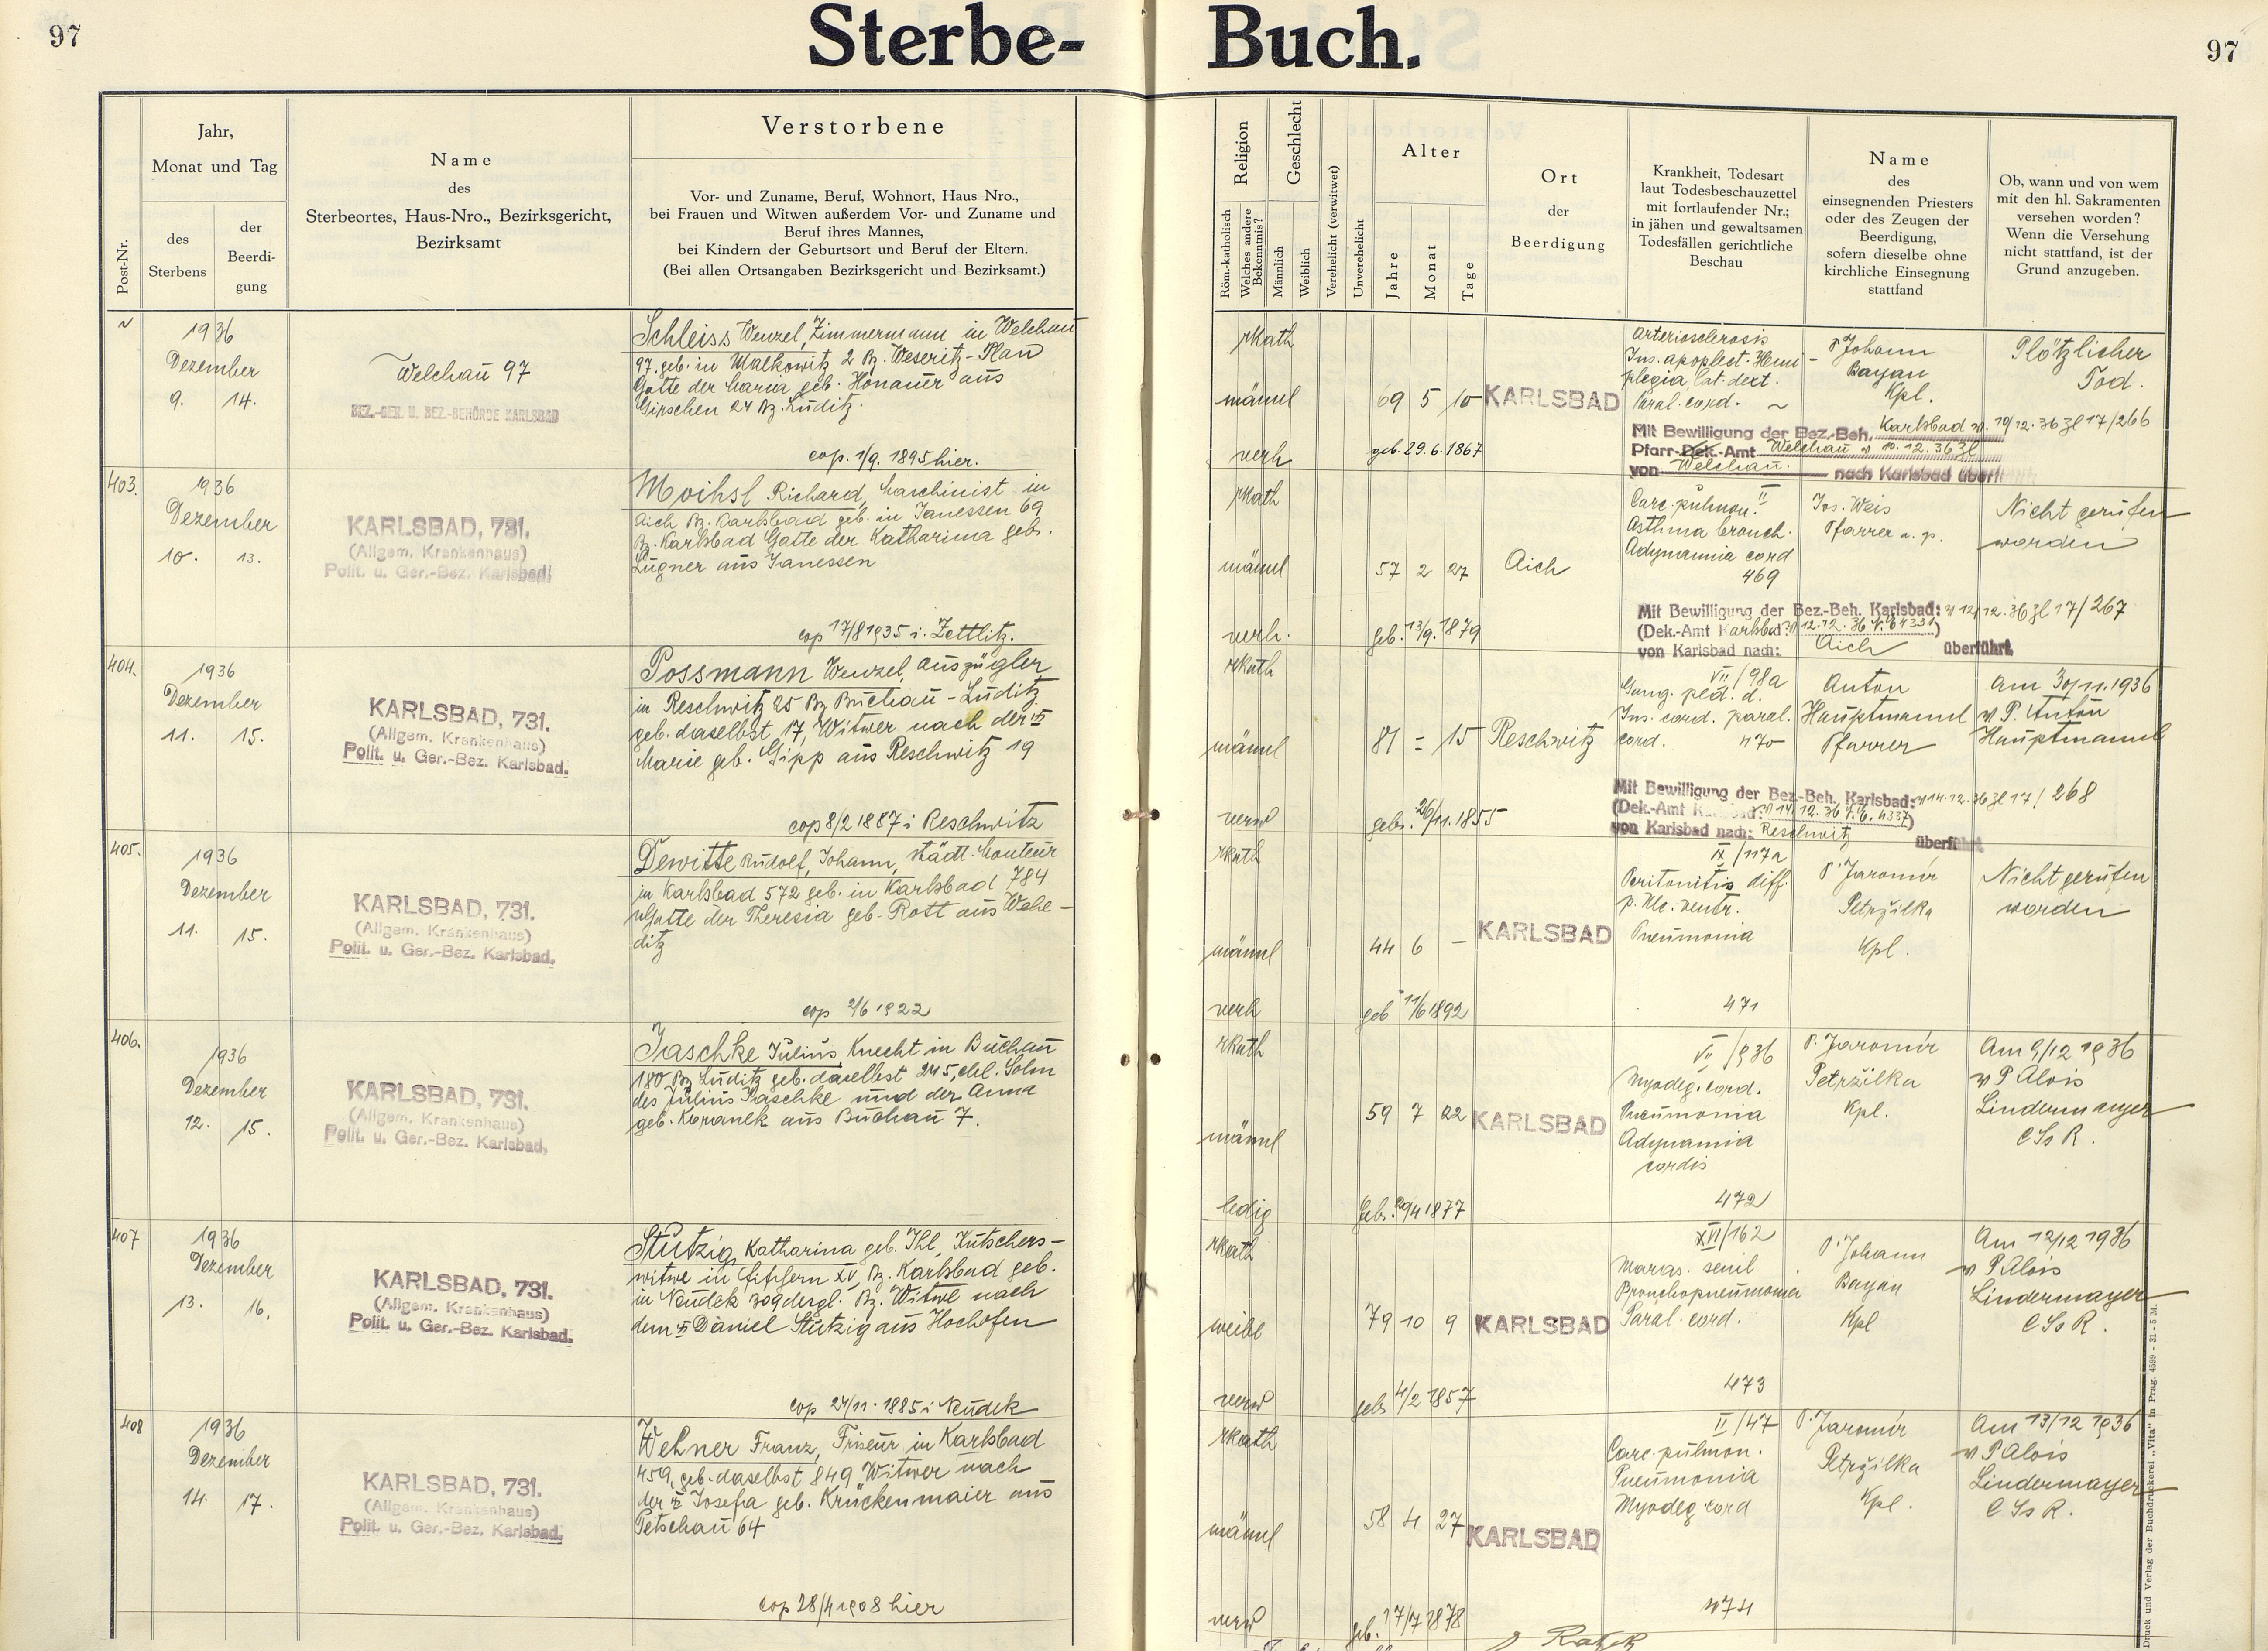 97
Sterbe- Buch.
97
Post-Nr.
Jahr,
Monat und Tag
des
Sterbens
der
Beerdi-
gung
Name
des
Sterbeortes, Haus-Nro., Bezirksgericht,
Bezirksamt
Verstorbene
Vor- und Zuname, Beruf, Wohnort, Haus Nro.,
bei Frauen und Witwen außerdem Vor- und Zuname und
Beruf ihres Mannes,
bei Kindern der Geburtsort und Beruf der Eltern.
(Bei allen Ortsangaben Bezirksgericht und Bezirksamt.)
Religion
Röm.-katholisch
Welches andere
Bekenntnis?
Geschlecht
Männlich
Weiblich
Verehelicht (verwitwet)
Unverehelicht
Alter
Jahre
Monat
Tage
Ort
der
Beerdigung
Krankheit, Todesart
laut Todesbeschauzettel
mit fortlaufender Nr.;
in jähen und gewaltsamen
Todesfällen gerichtliche
Beschau
Name
des
einsegnenden Priesters
oder des Zeugen der
Beerdigung,
sofern dieselbe ohne
kirchliche Einsegnung
stattfand
Ob, wann und von wem
mit den hl. Sakramenten
versehen worden?
Wenn die Versehung
nicht stattfand, ist der
Grund anzugeben.
~
1936
Dezember
9. 14.
Welchau 97
BEZ.-GER. U. BEZ.-BEHÖRDE KARLSBAD
Schleiss Wenzel, Zimmermann in Welchau
97, geb. in Malkowitz 2 Bz. Weseritz-Plan
Gatte der Maria geb. Honauer aus
Girschen 24 Bz. Luditz.
cop. 1/9. 1895 hier.
rkath
männl
verh
69 5 10
geb. 29.6.1867
KARLSBAD
Arteriosclerosis
Ins. apoplect. Hemi-
plegia lat. dext.
Paral. cord. ~
P. Johann
Bayan
Kpl.
Plötzlicher
Tod.
Mit Bewilligung der Bez.-Beh. Karlsbad v. 10/12.36 Zl 17/266
Pfarr-Dek.-Amt Welchau v 10.12.36 Zl
von Welchau nach Karlsbad überführt
403.
1936
Dezember
10. 13.
KARLSBAD, 731.
(Allgem. Krankenhaus)
Polit. u. Ger.-Bez. Karlsbad.
Moihsl Richard, Maschinist in
Aich Bz. Karlsbad geb. in Janessen 69
Bz. Karlsbad Gatte der Katharina geb.
Lugner aus Janessen
cop 17/8 1935 i. Zettlitz.
rkath
männl
verh.
57 2 27
geb. 13/9. 1879
Aich
Carc. pulmon.
Asthma bronch.
Adynamia cord
469
Jos. Weis
Pfarrer a. p.
Nicht gerufen
worden
Mit Bewilligung der Bez.-Beh. Karlsbad: v 12/12.36 Zl 17/267
(Dek.-Amt Karlsbad: v 12.12.36 4331)
von Karlsbad nach: Aich überführt.
404.
1936
Dezember
11. 15.
KARLSBAD, 731.
(Allgem. Krankenhaus)
Polit. u. Ger.-Bez. Karlsbad.
Possmann Wenzel, Auszügler
in Reschwitz 25 Bz Buchau-Luditz
geb. daselbst 17, Witwer nach der
Marie geb. Gipp aus Reschwitz 19
cop 8/2 1887 i Reschwitz
rkath
männl
verw
81 = 15
geb. 26/11. 1855
Reschwitz
VII/98a
Gang. ped. d.
Ins. cord. paral.
cord. 470
Anton
Hauptmannl
Pfarrer
Am 30/11.1936
v P. Anton
Hauptmannl
Mit Bewilligung der Bez.-Beh. Karlsbad: v 14.12.36 Zl 17/268
(Dek.-Amt Karlsbad: v 14.12.36 4337)
von Karlsbad nach: Reschwitz überführt
405.
1936
Dezember
11. 15.
KARLSBAD, 731.
(Allgem. Krankenhaus)
Polit. u. Ger.-Bez. Karlsbad.
Dewitte Rudolf, Johann, städt. Monteur
in Karlsbad 572 geb. in Karlsbad 784
Gatte der Theresia geb. Rott aus Wehe-
ditz
cop 2/6 1922
rkath
männl
verh
44 6 –
geb 11/6 1892
KARLSBAD
IX/117a
Peritonitis diff.
p. Ulc. ventr.
Pneumonia
471
P. Jaromír
Petržilka
Kpl.
Nicht gerufen
worden
406.
1936
Dezember
12. 15.
KARLSBAD, 731.
(Allgem. Krankenhaus)
Polit. u. Ger.-Bez. Karlsbad.
Jaschke Julius, Knecht in Buchau
180 Bz Luditz geb. daselbst 245, ehl. Sohn
des Julius Jaschke und der Anna
geb. Koranek aus Buchau 7.
rkath
männl
ledig
59 7 22
KARLSBAD
VII/936
Myodeg. cord.
Pneumonia
Adynamia
cordis
472
P. Jaromír
Petržilka
Kpl.
Am 9/12 1936
v P Alois
Lindermayer
C Ss R.
407
1936
Dezember
13. 16.
KARLSBAD, 731.
(Allgem. Krankenhaus)
Polit. u. Ger.-Bez. Karlsbad.
Stützig Katharina geb. Ihl, Kutschers-
witwe in Fischern XV, Bz. Karlsbad geb.
in Neudek 309 desgl. Bz. Witwe nach
dem Daniel Stützig aus Hochofen
cop 24/11. 1885 i Neudek
rkath
weibl
verw
79 10 9
geb 4/2 1857
KARLSBAD
XVI/162
Maras. senil
Bronchopneumonia
Paral. cord.
473
P. Johann
Bayan
Kpl
Am 12/12 1936
v P Alois
Lindermayer
C Ss R.
408
1936
Dezember
14. 17.
KARLSBAD, 731.
(Allgem. Krankenhaus)
Polit. u. Ger.-Bez. Karlsbad.
Wehner Franz, Friseur in Karlsbad
459, geb. daselbst 849 Witwer nach
der Josefa geb. Krückenmaier aus
Petschau 64
cop 28/4 1908 hier
rkath
männl
verw
58 4 27
geb. 17/7 1878
KARLSBAD
II/47
Carc. pulmon.
Pneumonia
Myodeg. cord
474
P. Jaromír
Petržilka
Kpl.
Am 13/12 1936
v P Alois
Lindermayer
C Ss R.
Druck und Verlag der Buchdruckerei „Vita" in Prag. 4599 - 31 - 5 M.